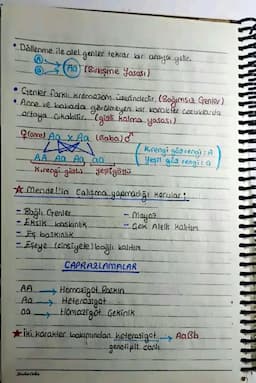 • Döllenme ile alel genler tekrar bir araya gelir.
A
a
Aa (Birleşme Yasası)
• Genler farklı kromozom üzerindedir. (Bağımsız Genler)
• Anne ve babada görülmeyen bir karakter çocuklarda
ortaya çıkabilir. (gizli kalma yasası)
♀(ana) Aa x Aa (baba)♂
AA Aa Aa aa
K.rengi gözlü yeşilgözlü
K.rengi göz rengi: A
Yeşil göz rengi: a
★ Mendel'in Çalışma yapmadığı konular:
- Bağlı Genler
- Eksik baskınlık
- Eş baskınlık
- Eşeye (cinsiyete) bağlı kalıtım
- Mayoz
- Çok Alelli Kalıtım
ÇAPRAZLAMALAR
AA → Homozigot Baskın
Aa → Heterozigot
aa → Homozigot Çekinik
★ İki karakter bakımından heterozigot → AaBb
genotipli canlı